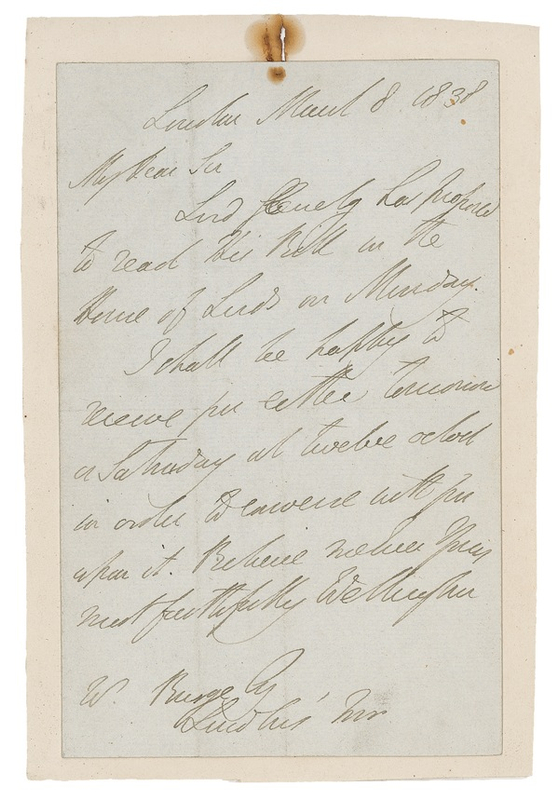 London March 8 1838
My Dear Sir
Lord Glenelg has proposed
to read his Bill in the
House of Lords on Monday.
I shall be happy to
receive you either tomorrow
or Saturday at twelve oclock
in order to converse with you
upon it. Believe me Yours
most faithfully Wellington
W. Burge Esq
Lincolns' Inn